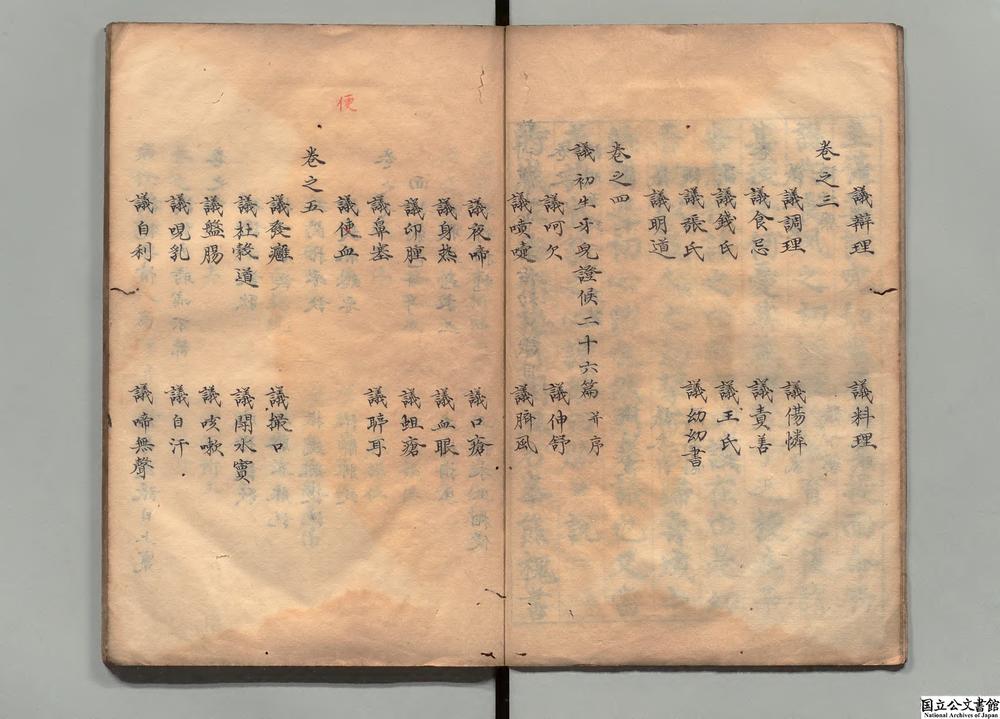 卷之三
議辯理　議料理
議調理　議傷憐
議食忌　議責善
議錢氏　議王氏
議張氏　議幼幼書
議明道
卷之四
議初生牙兒證候二十六篇 并序
議呵欠　議伸舒
議噴嚏　議臍風
議夜啼　議口瘡
議身熱　議血眼
議卯腫　議蛆瘡
議鼻塞　議聤耳
議便血
便
卷之五
議發癰　議撮口
議杜穀道　議閉水竇
議盤腸　議咳嗽
議哯乳　議自汗
議自利　議啼無聲
国立公文書館
National Archives of Japan